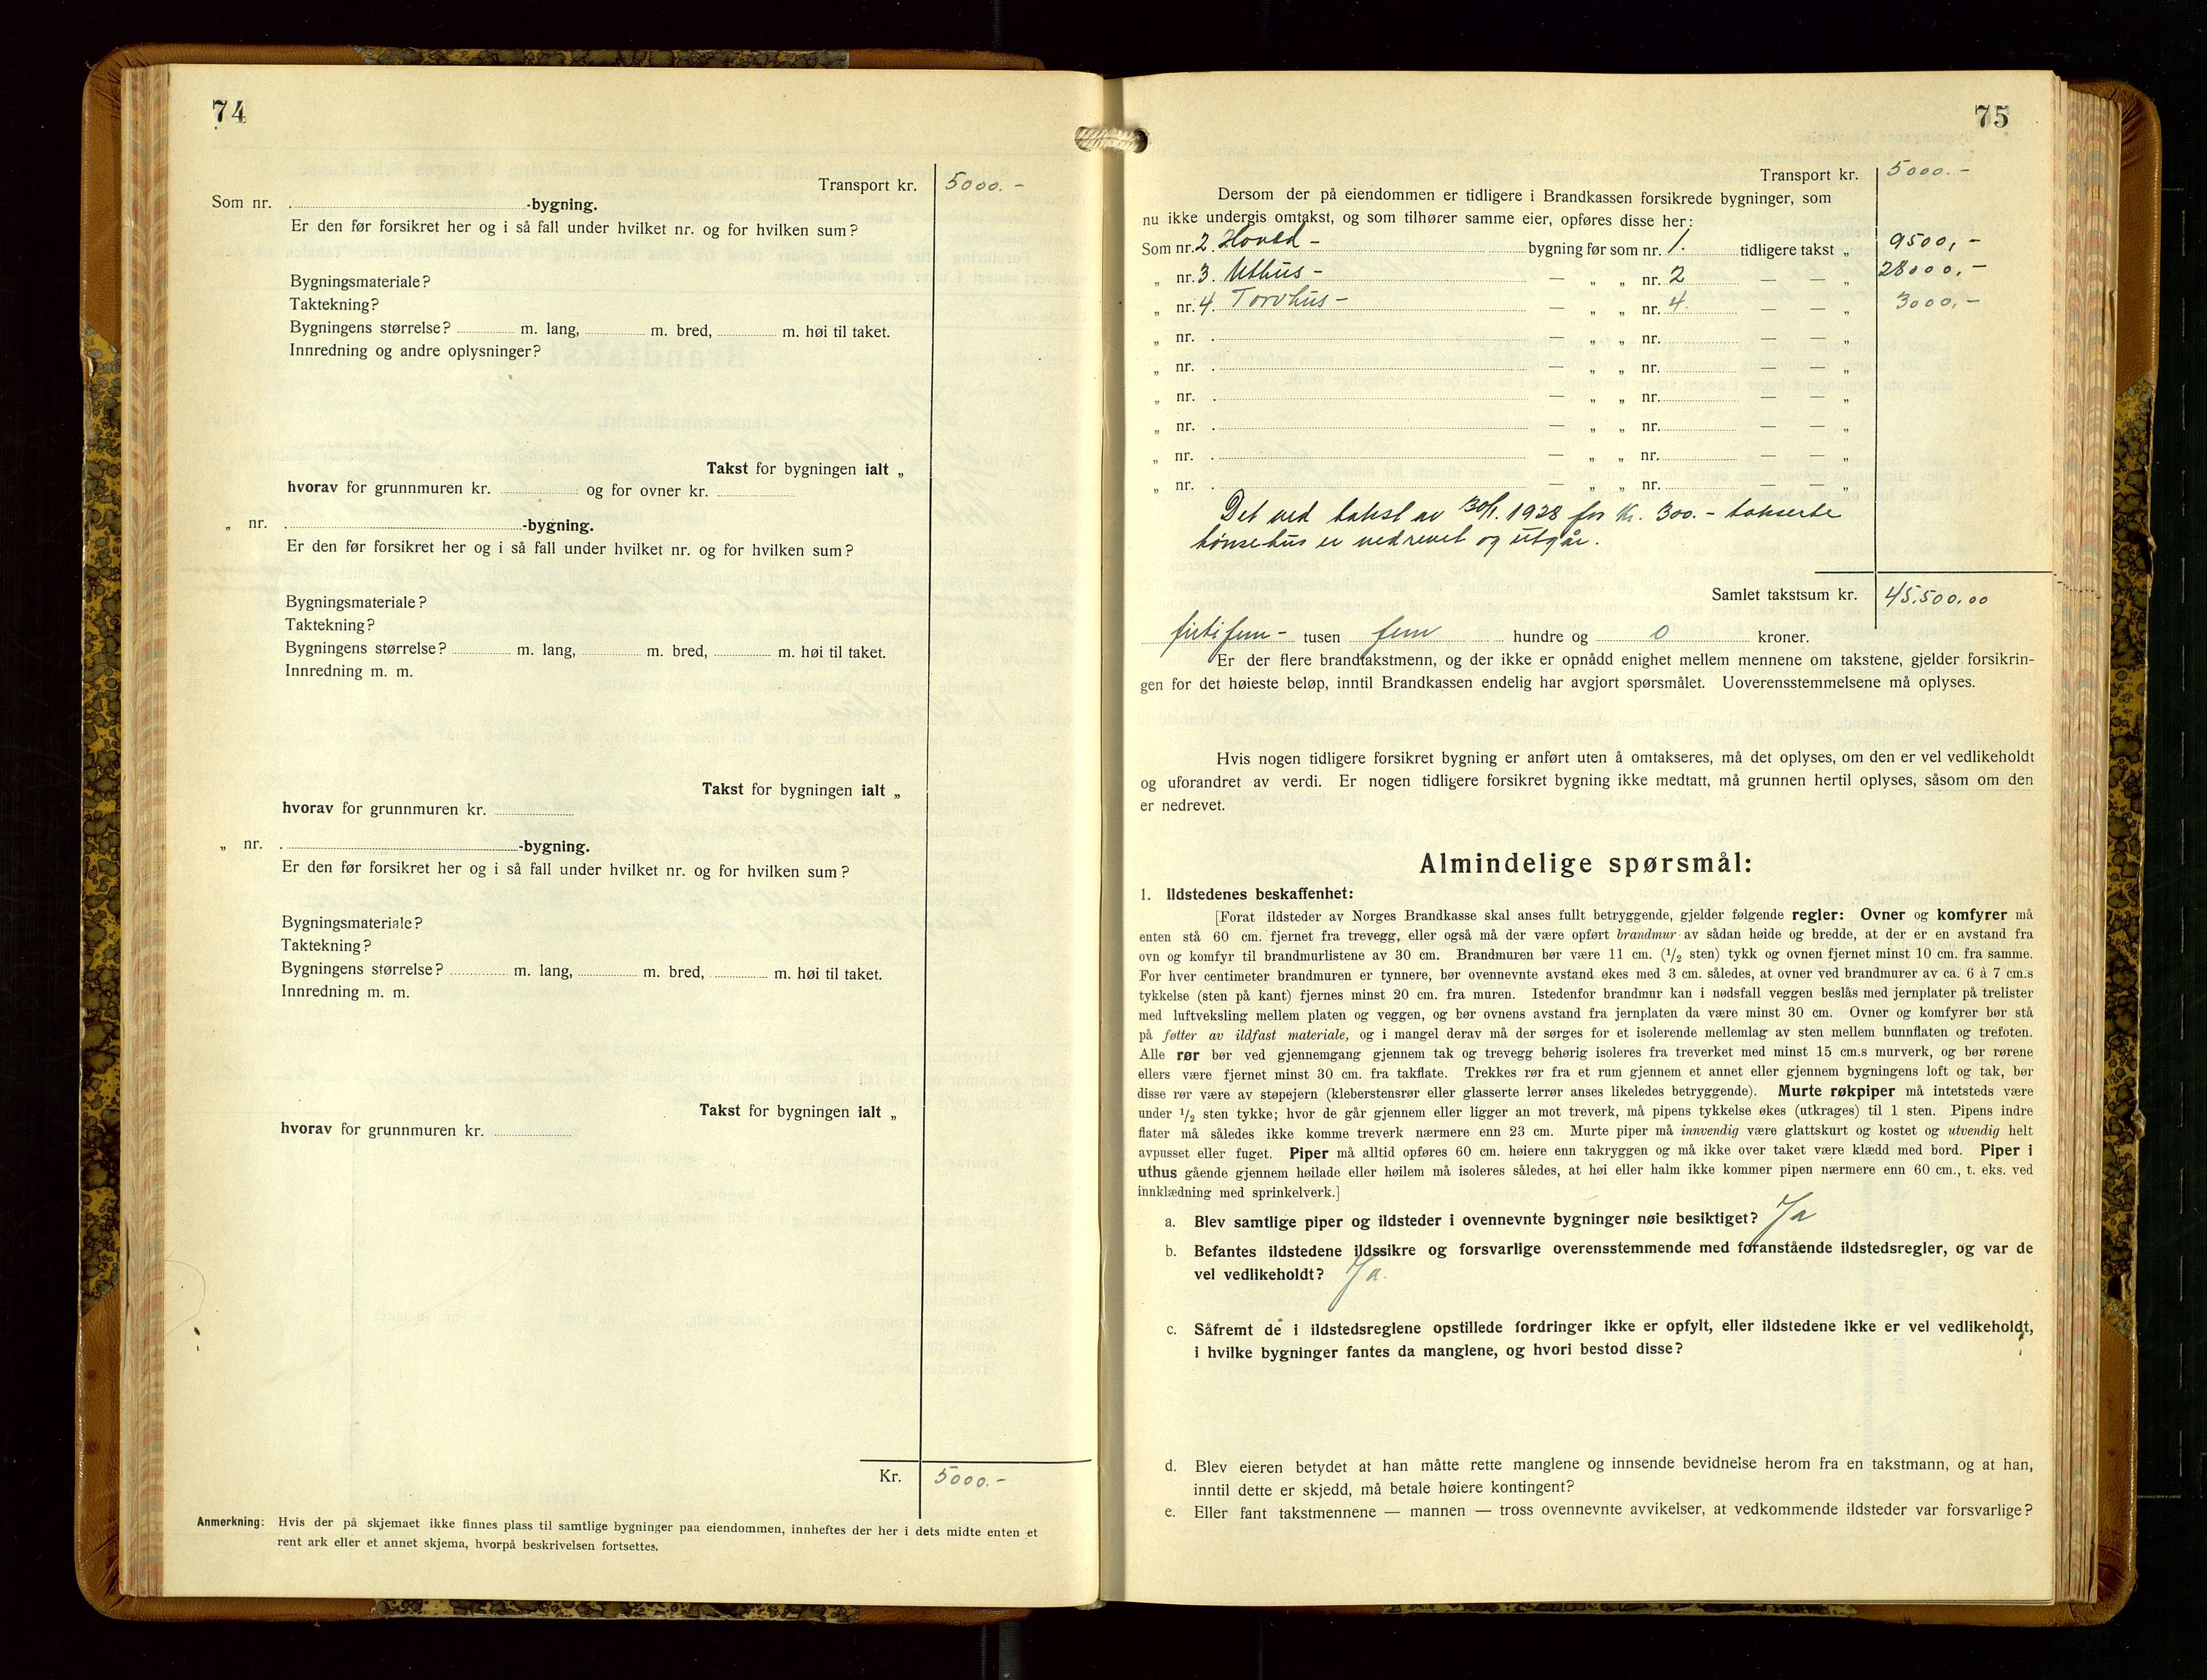 74
Transport kr. 5000.-
Som nr. . -bygning.
Er den før forsikret her og i så fall under hvilket nr. og for hvilken sum?
Bygningsmateriale?
Taktekning?
Bygningens størrelse? m. lang, m. bred, m. høi til taket.
Innredning og andre oplysninger?
Takst for bygningen ialt „
hvorav for grunnmuren kr. og for ovner kr.
„ nr. . -bygning.
Er den før forsikret her og i så fall under hvilket nr. og for hvilken sum?
Bygningsmateriale?
Taktekning?
Bygningens størrelse? m. lang, m. bred, m. høi til taket.
Innredning m. m.
Takst for bygningen ialt „
hvorav for grunnmuren kr.
„ nr. . -bygning.
Er den før forsikret her og i så fall under hvilket nr. og for hvilken sum?
Bygningsmateriale?
Taktekning?
Bygningens størrelse? m. lang, m. bred, m. høi til taket.
Innredning m. m.
Takst for bygningen ialt „
hvorav for grunnmuren kr.
Kr. 5000.-
Anmerkning: Hvis der på skjemaet ikke finnes plass til samtlige bygninger paa eiendommen, innheftes der her i dets midte enten et
rent ark eller et annet skjema, hvorpå beskrivelsen fortsettes.
75
Transport kr. 5000.-
Dersom der på eiendommen er tidligere i Brandkassen forsikrede bygninger, som
nu ikke undergis omtakst, og som tilhører samme eier, opføres disse her:
Som nr. 2. Hoved - bygning før som nr. 1. tidligere takst „ 9500,-
„ nr. 3. Uthus - — „ „ nr. 2 — — „ 28000,-
„ nr. 4. Torvhus - — „ „ nr. 4. — — „ 3000,-
„ nr. . — „ „ nr. — — „
„ nr. . — „ „ nr. — — „
„ nr. . — „ „ nr. — — „
„ nr. . — „ „ nr. — — „
„ nr. . — „ „ nr. — — „
„ nr. . — „ „ nr. — — „
Det ved takst av 30/1. 1928 for kr. 300.- takserte
hønsehus er nedrevet og utgår.
Samlet takstsum kr. 45.500.00
firti fem - tusen fem hundre og 0 kroner.
Er der flere brandtakstmenn, og der ikke er opnådd enighet mellem mennene om takstene, gjelder forsikrin-
gen for det høieste beløp, inntil Brandkassen endelig har avgjort spørsmålet. Uoverensstemmelsene må oplyses.
Hvis nogen tidligere forsikret bygning er anført uten å omtakseres, må det oplyses, om den er vel vedlikeholdt
og uforandret av verdi. Er nogen tidligere forsikret bygning ikke medtatt, må grunnen hertil oplyses, såsom om den
er nedrevet.
Almindelige spørsmål:
1. Ildstedenes beskaffenhet:
[Forat ildsteder av Norges Brandkasse skal anses fullt betryggende, gjelder følgende regler: Ovner og komfyrer må
enten stå 60 cm. fjernet fra trevegg, eller også må der være opført brandmur av sådan høide og bredde, at der er en avstand fra
ovn og komfyr til brandmurlistene av 30 cm. Brandmuren bør være 11 cm. (1/2 sten) tykk og ovnen fjernet minst 10 cm. fra samme.
For hver centimeter brandmuren er tynnere, bør ovennevnte avstand økes med 3 cm. således, at ovner ved brandmurer av ca. 6 à 7 cm.s
tykkelse (sten på kant) fjernes minst 20 cm. fra muren. Istedenfor brandmur kan i nødsfall veggen beslås med jernplater på trelister
med luftveksling mellem platen og veggen, og bør ovnens avstand fra jernplaten da være minst 30 cm. Ovner og komfyrer bør stå
på føtter av ildfast materiale, og i mangel derav må der sørges for et isolerende mellemlag av sten mellem bunnflaten og trefoten.
Alle rør bør ved gjennemgang gjennem tak og trevegg behørig isoleres fra treverket med minst 15 cm.s murverk, og bør rørene
ellers være fjernet minst 30 cm. fra takflate. Trekkes rør fra et rum gjennem et annet eller gjennem bygningens loft og tak, bør
disse rør være av støpejern (kleberstensrør eller glasserte lerrør anses likeledes betryggende). Murte røkpiper må intetsteds være
under 1/2 sten tykke; hvor de går gjennem eller ligger an mot treverk, må pipens tykkelse økes (utkrages) til 1 sten. Pipens indre
flater må således ikke komme treverk nærmere enn 23 cm. Murte piper må innvendig være glattskurt og kostet og utvendig helt
avpusset eller fuget. Piper må alltid opføres 60 cm. høiere enn takryggen og må ikke over taket være klædd med bord. Piper i
uthus gående gjennem høilade eller høilem må isoleres således, at høi eller halm ikke kommer pipen nærmere enn 60 cm., t. eks. ved
innklædning med sprinkelverk.]
a. Blev samtlige piper og ildsteder i ovennevnte bygninger nøie besiktiget? Ja
b. Befantes ildstedene ildssikre og forsvarlige overensstemmende med foranstående ildstedsregler, og var de
vel vedlikeholdt? Ja.
c. Såfremt de i ildstedsreglene opstillede fordringer ikke er opfylt, eller ildstedene ikke er vel vedlikeholdt,
i hvilke bygninger fantes da manglene, og hvori bestod disse?
d. Blev eieren betydet at han måtte rette manglene og innsende bevidnelse herom fra en takstmann, og at han,
inntil dette er skjedd, må betale høiere kontingent?
e. Eller fant takstmennene — mannen — tross ovennevnte avvikelser, at vedkommende ildsteder var forsvarlige?